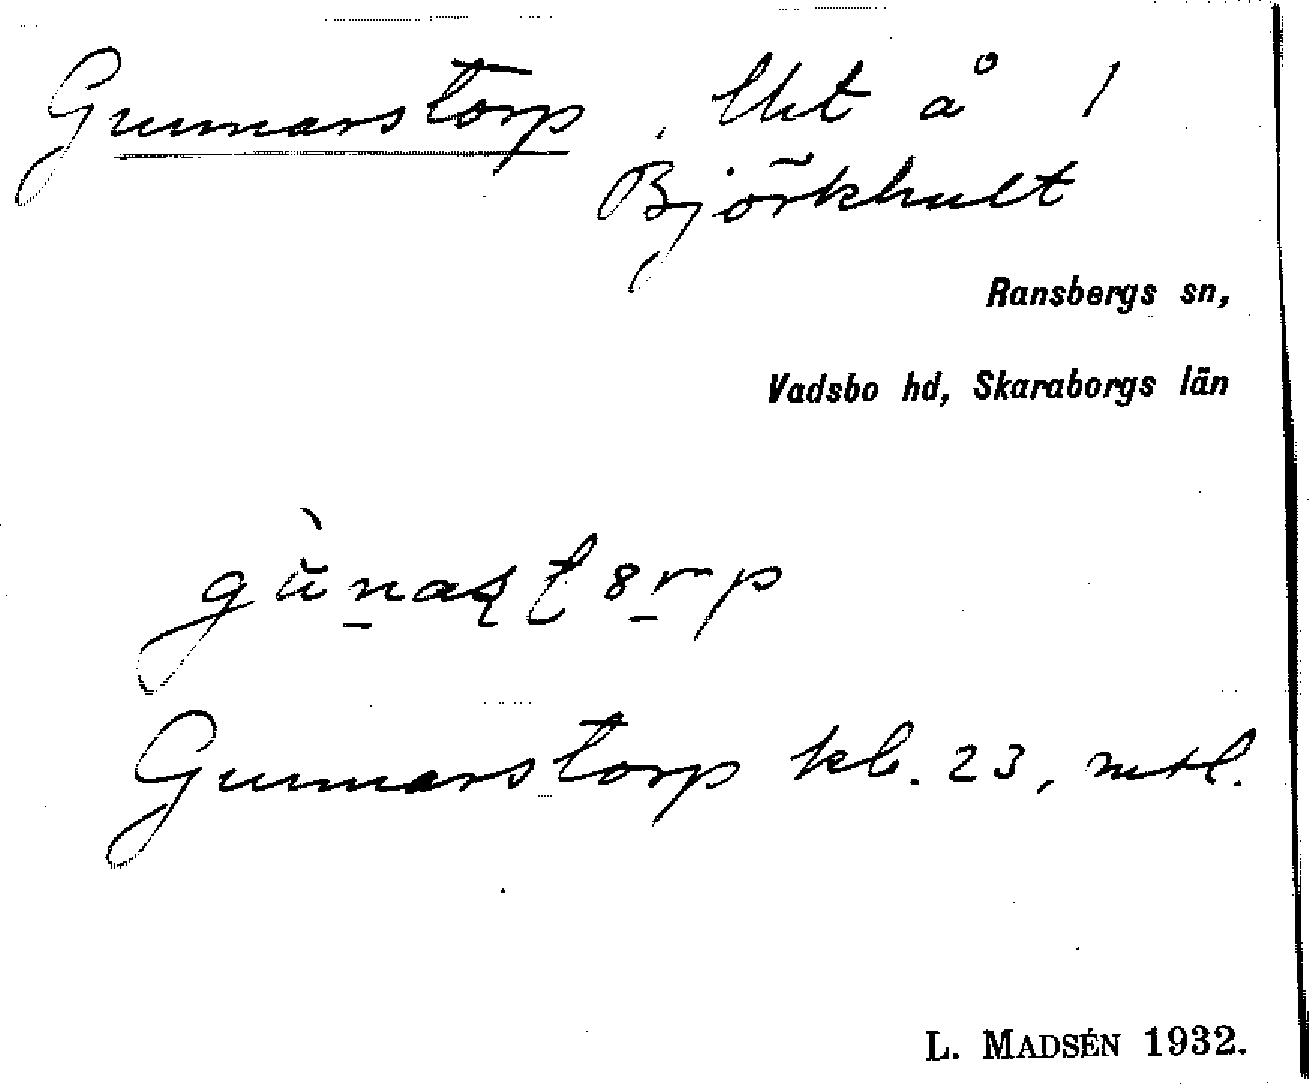 Gunnarstorp, lht å 1
Björkhult
Ransbergs sn,
Vadsbo hd, Skaraborgs län
Gunnarstorp kb. 23, mtl.
L. MADSÉN 1932.